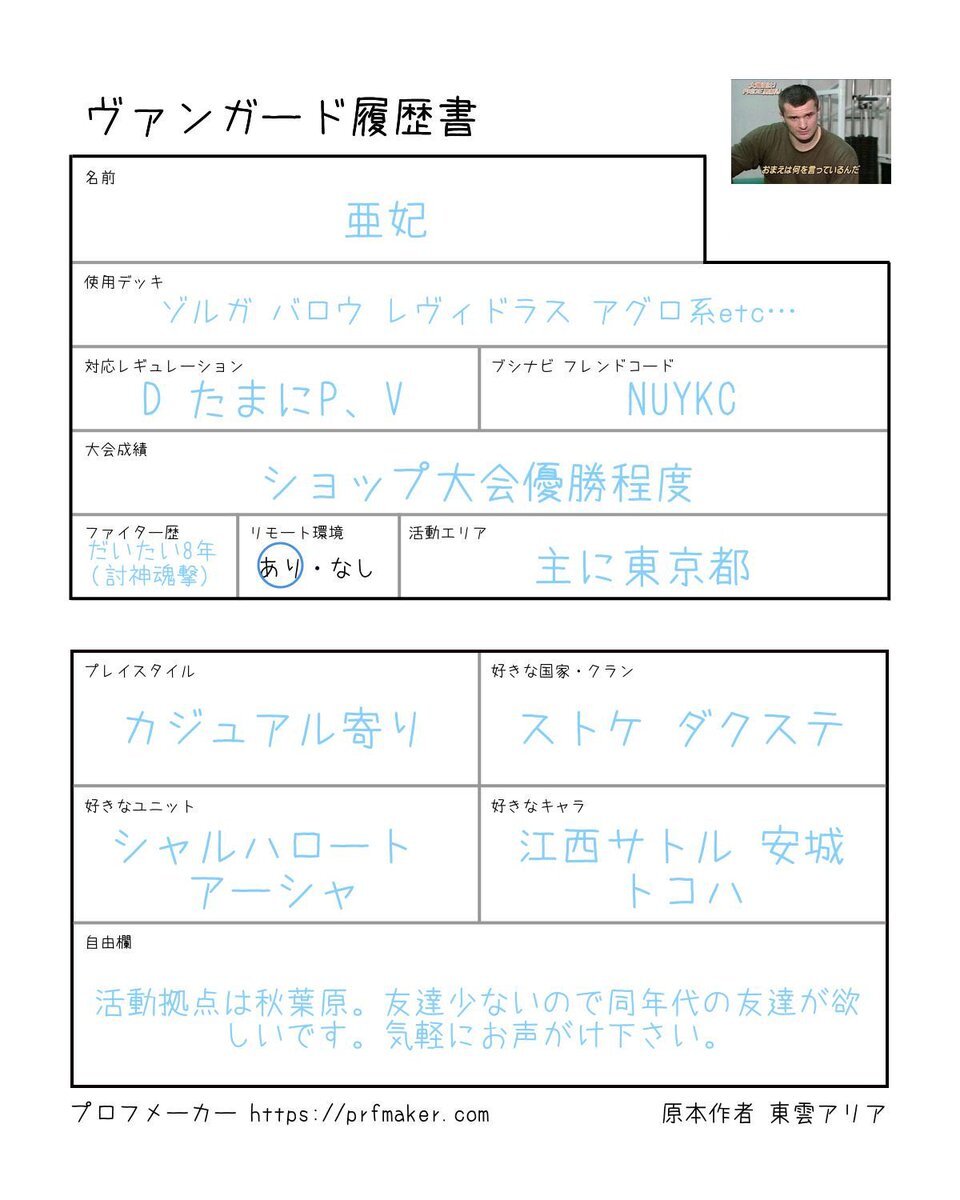 ヴァンガード履歴書
おまえは何を言っているんだ
名前
亜妃
使用デッキ
ゾルガ バロウ レヴィドラス アグロ系etc…
対応レギュレーション
D たまにP、V
ブシナビ フレンドコード
NUYKC
大会成績
ショップ大会優勝程度
ファイター歴
だいたい8年
(討神魂撃)
リモート環境
あり・なし
活動エリア
主に東京都
プレイスタイル
カジュアル寄り
好きな国家・クラン
ストケ ダクステ
好きなユニット
シャルハロート
アーシャ
好きなキャラ
江西サトル 安城
トコハ
自由欄
活動拠点は秋葉原。友達少ないので同年代の友達が欲
しいです。気軽にお声がけ下さい。
プロフメーカー https://prfmaker.com
原本作者 東雲アリア